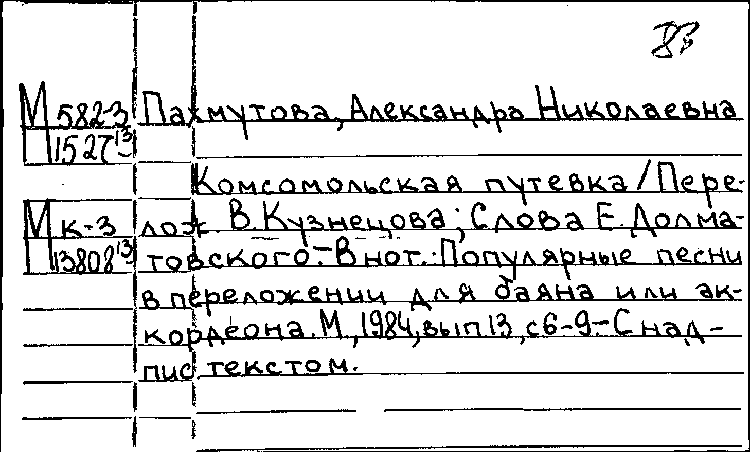 М 582-3 Пахмутова, Александра Николаевна
П 1527 13
Комсомольская путевка / Пере-
М К-3 лож. В. Кузнецова; Слова Е. Долма-
П 13808 13 товского.- В нот.: Популярные песни
в переложении для баяна или ак-
кордеона. М., 1984, вып 13, с 6-9.- С над-
пис. текстом.